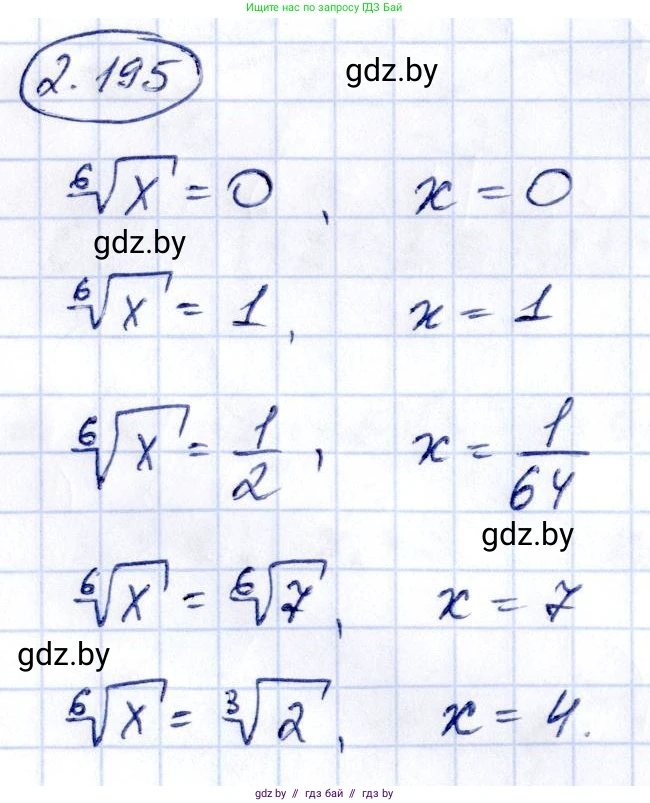 Ищите нас по запросу ГДЗ Бай
2.195
gdz.by
⁶√x = 0, x = 0
gdz.by
⁶√x = 1, x = 1
⁶√x = 1/2, x = 1/64
gdz.by
⁶√x = ⁶√7, x = 7
gdz.by
⁶√x = ³√2, x = 4.
gdz.by // гдз бай // гдз by